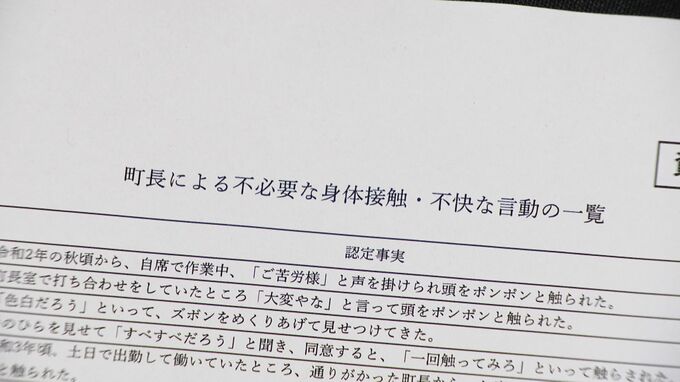 町長による不必要な身体接触・不快な言動の一覧
認定事実
令和2年の秋頃から、自席で作業中、「ご苦労様」と声を掛けられ頭をポンポンと触られた。
町長室で打ち合わせをしていたところ「大変やな」と言って頭をポンポンと触られた。
「色白だろう」といって、ズボンをめくりあげて見せつけてきた。
のひらを見せて「すべすべだろう」と聞き、同意すると、「一回触ってみろ」といって触らされた。
和3年頃。土日で出勤して働いていたところ、通りがかった町長から
と触られた。